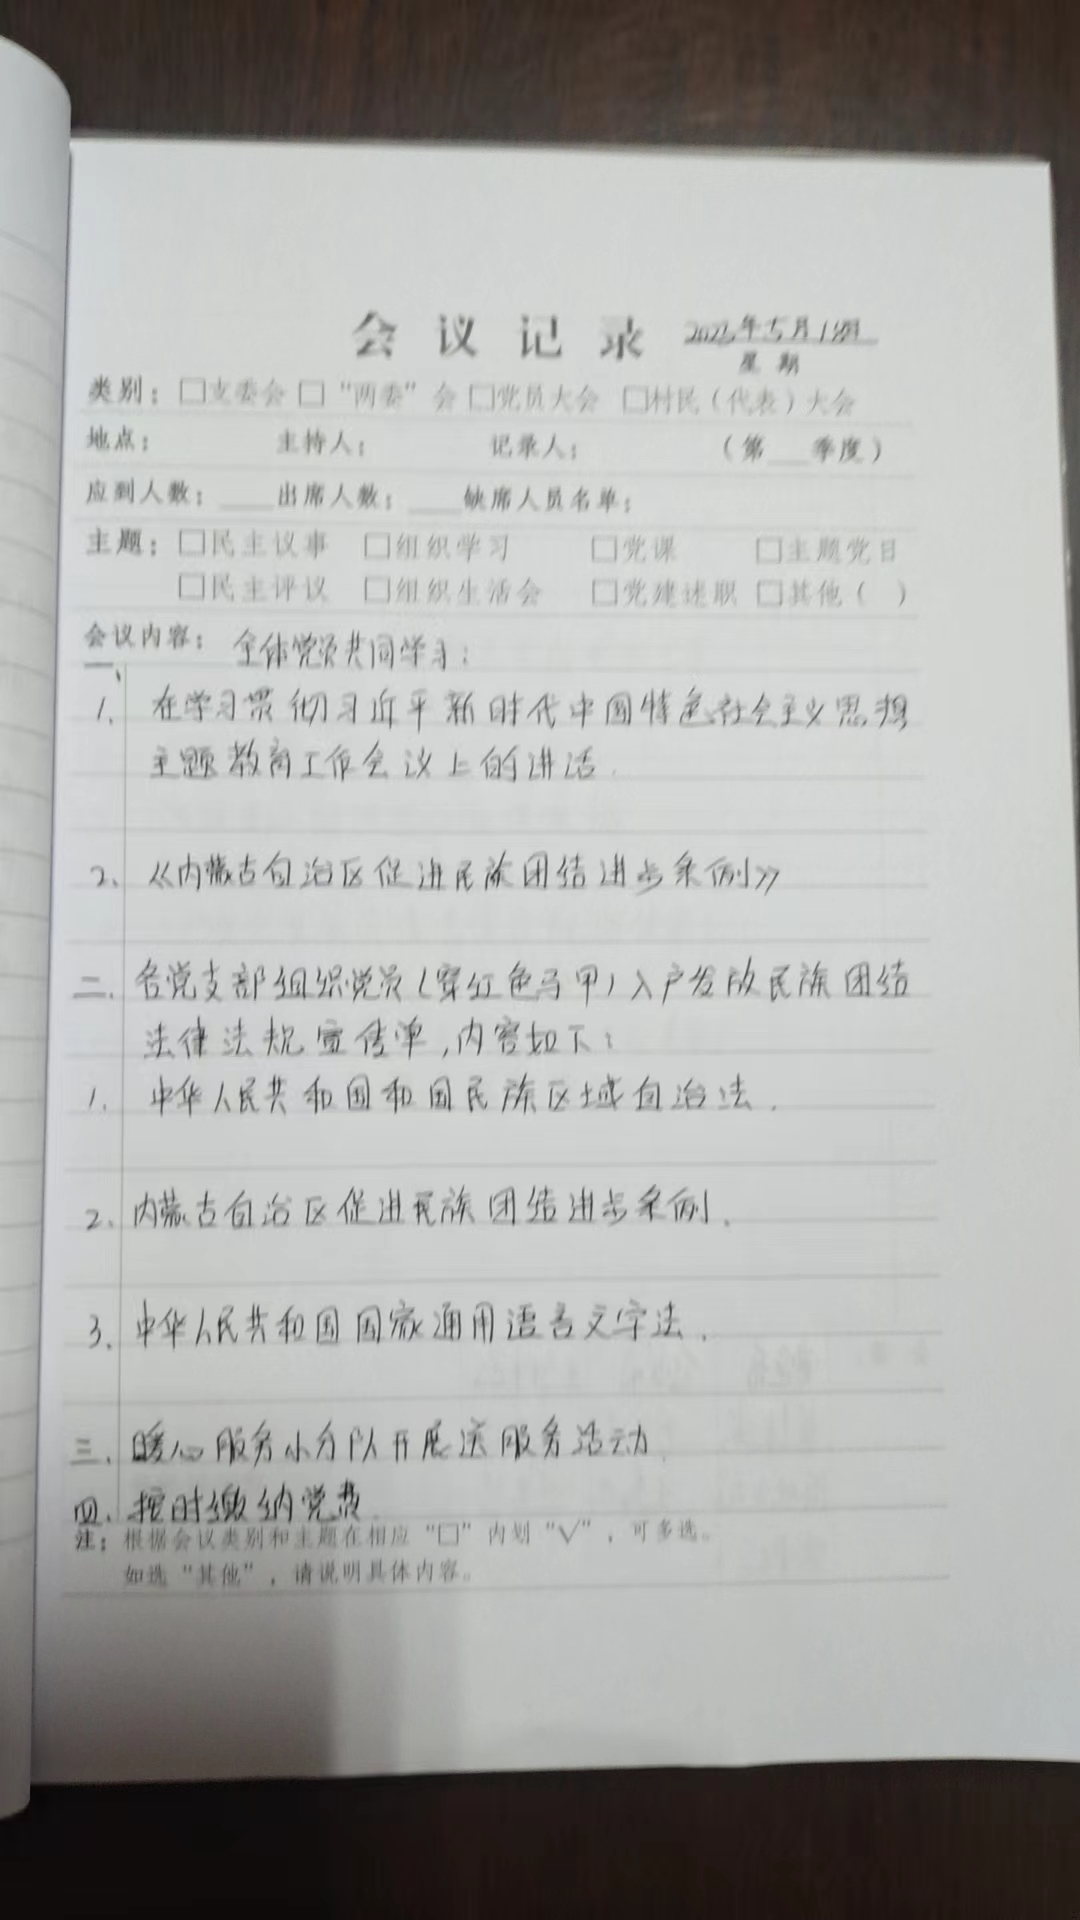 会议记录 2023年5月18日
星期
类别：□支委会 □“两委”会 □党员大会 □村民（代表）大会
地点： 主持人： 记录人： （第 季度）
应到人数： 出席人数： 缺席人员名单：
主题：□民主议事 □组织学习 □党课 □主题党日
□民主评议 □组织生活会 □党建述职 □其他（ ）
会议内容： 全体党员共同学习：
一、
1. 在学习贯彻习近平新时代中国特色社会主义思想
主题教育工作会议上的讲话.
2. 《内蒙古自治区促进民族团结进步条例》
二. 各党支部组织党员(穿红色马甲)入户发放民族团结
法律法规宣传单,内容如下：
1. 中华人民共和国和国民族区域自治法.
2. 内蒙古自治区促进民族团结进步条例.
3. 中华人民共和国国家通用语言文字法.
三. 暖心服务小分队开展送服务活动.
四. 按时缴纳党费.
注：根据会议类别和主题在相应“□”内划“√”，可多选。
如选“其他”，请说明具体内容。